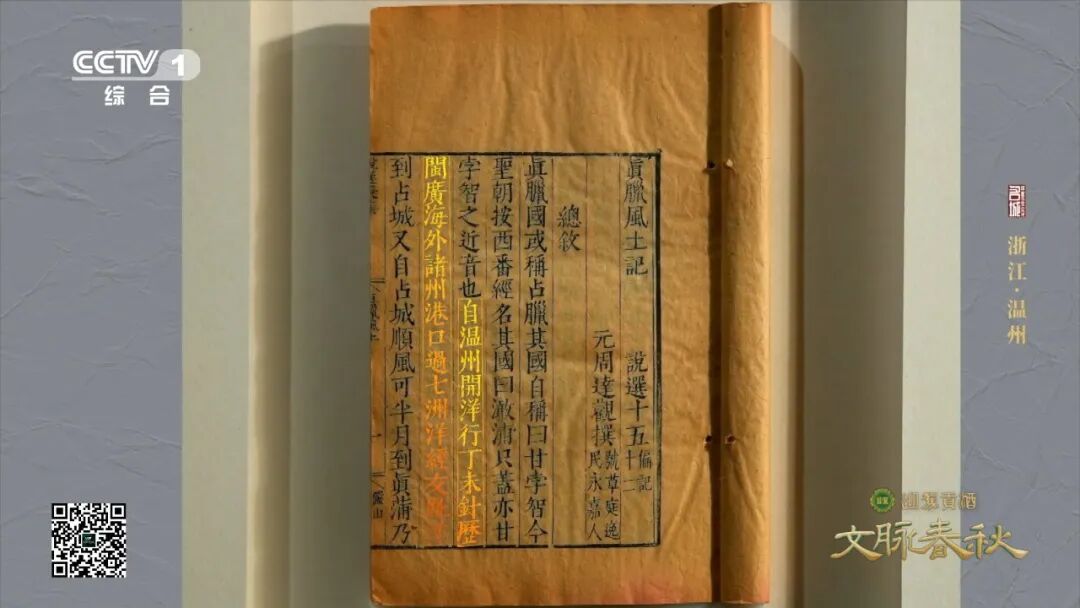 CCTV 1
综合
眞臘風土記
說選十五 偏記十二
元周達觀撰 號草庭逸民永嘉人
總敘
眞臘國或稱占臘其國自稱曰甘孛智今
聖朝按西番經名其國曰澉浦只蓋亦甘
孛智之近音也自温州開洋行丁未針歷
閩廣海外諸州港口過七洲洋經交趾洋
到占城又自占城順風可半月到眞蒲乃
名城
浙江·温州
文脉春秋